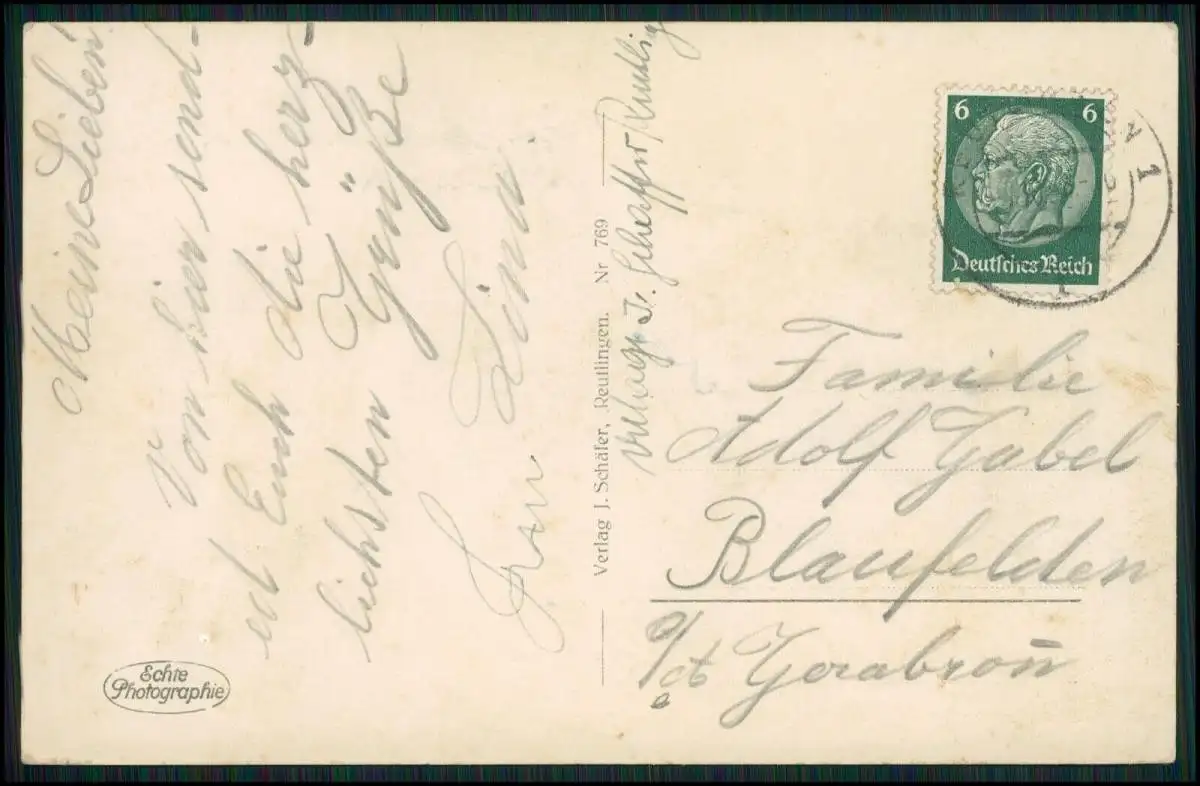 Meine Lieben!
Von hier send-
et Euch die herz-
lichsten Grüße
Lina.
Echte
Photographie
Verlag J. Schäfer, Reutlingen. Nr 769
6 6
Deutsches Reich
1
Familie
Adolf Gabel
Blaufelden
Gerabronn